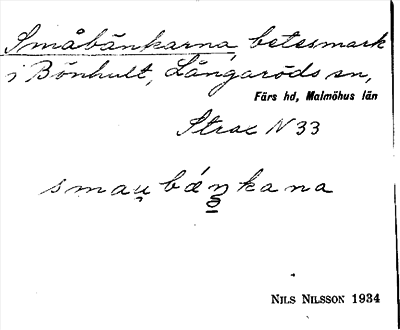 Småbänkarna, betesmark
i Bönhult, Långaröds sn,
Färs hd, Malmöhus län
Strax N 33
smau̯bǽŋ̲kana
NILS NILSSON 1934